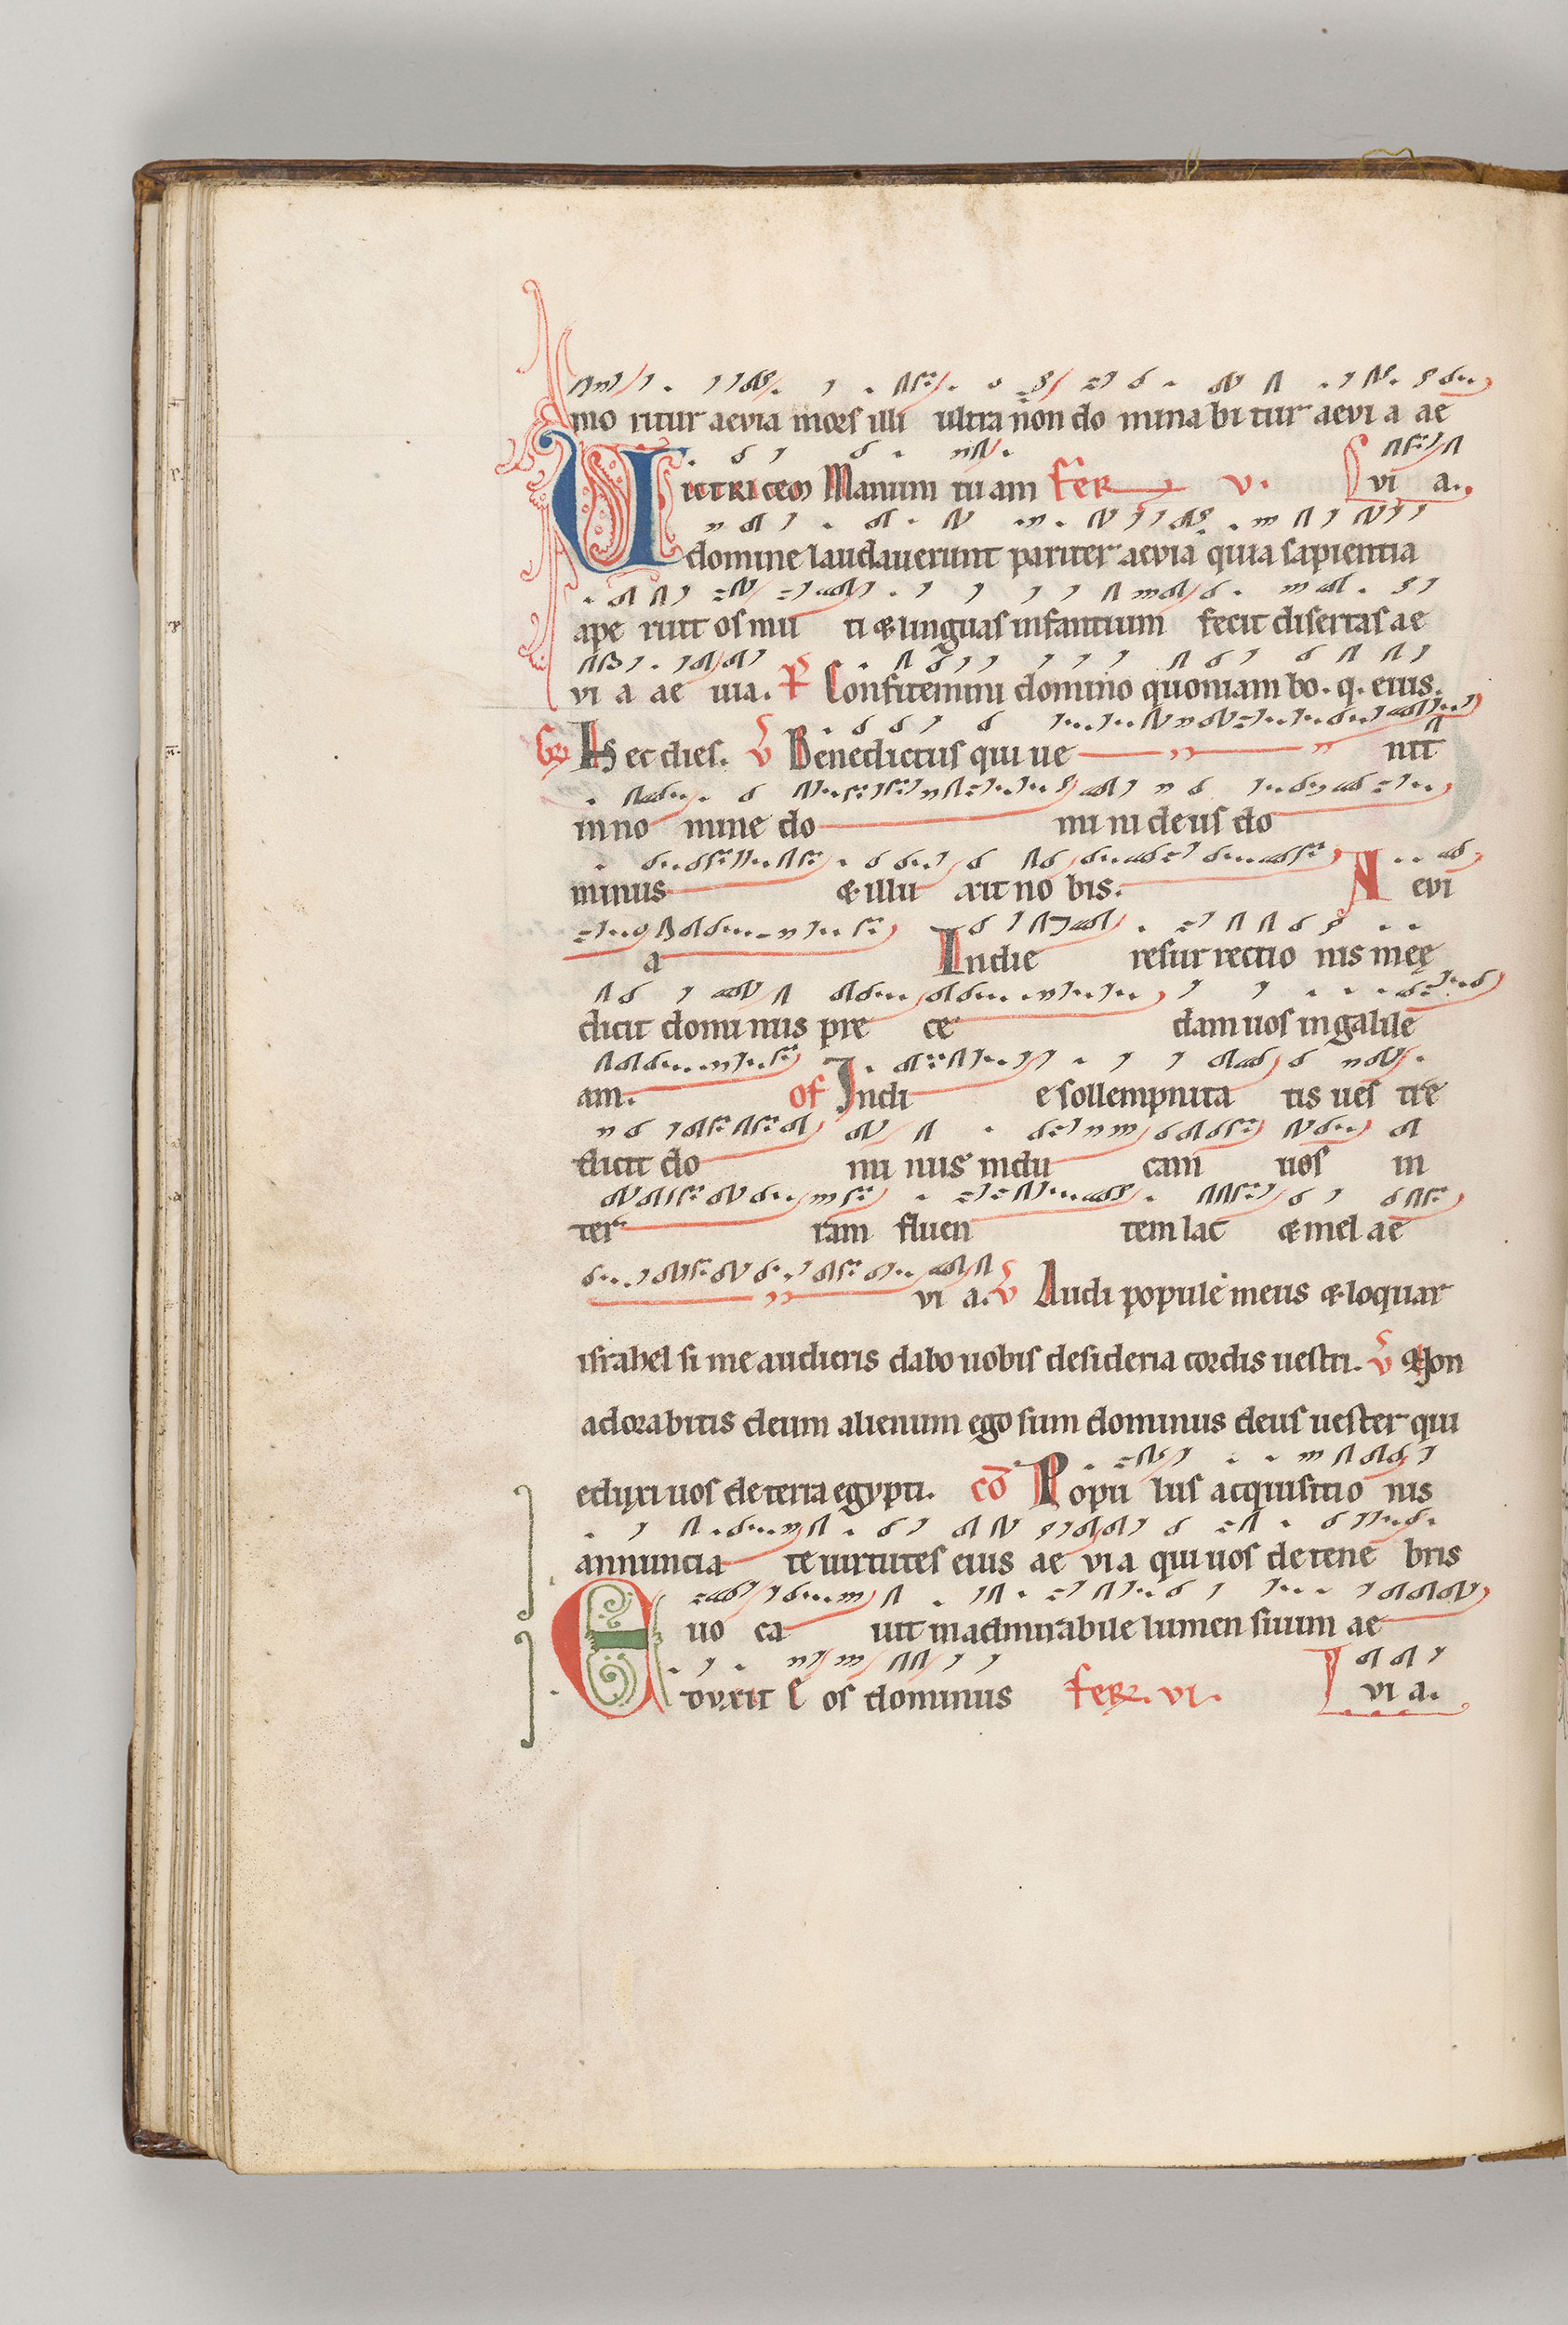 mo ritur aevia mors illi ultra non do mina bi tur aevi a ae
vi a.
Uictricem Manum tu am Fer v.
domine laudauerunt pariter aevia quia sapientia
ape ruit os mu ti & linguas infantium fecit disertas ae
vi a ae uia. P Confitemini domino quoniam bo. q. eius.
Gr Hec dies. V Benedictus qui ue nit
in no mine do mi ni deus do
minus & illu xit no bis. A evi
a In die resur rectio nis meę
dicit domi nus pre ce dam uos in galile
am. Of In di e sollempnita tis ues tre
dicit do mi nus indu cam uos in
ter ram fluen tem lac & mel ae
vi a. V Audi popule meus & loquar
israhel si me audieris dabo uobis desideria cordis uestri. V Non
adorabitis deum alienum ego sum dominus deus uester qui
eduxi uos de terra egypti. Co Popu lus acquisitio nis
annuncia te uirtutes eius ae via qui uos de tene bris
suo ca uit in admirabile lumen suum ae
vi a.
Eduxit e os dominus Fer. vi.